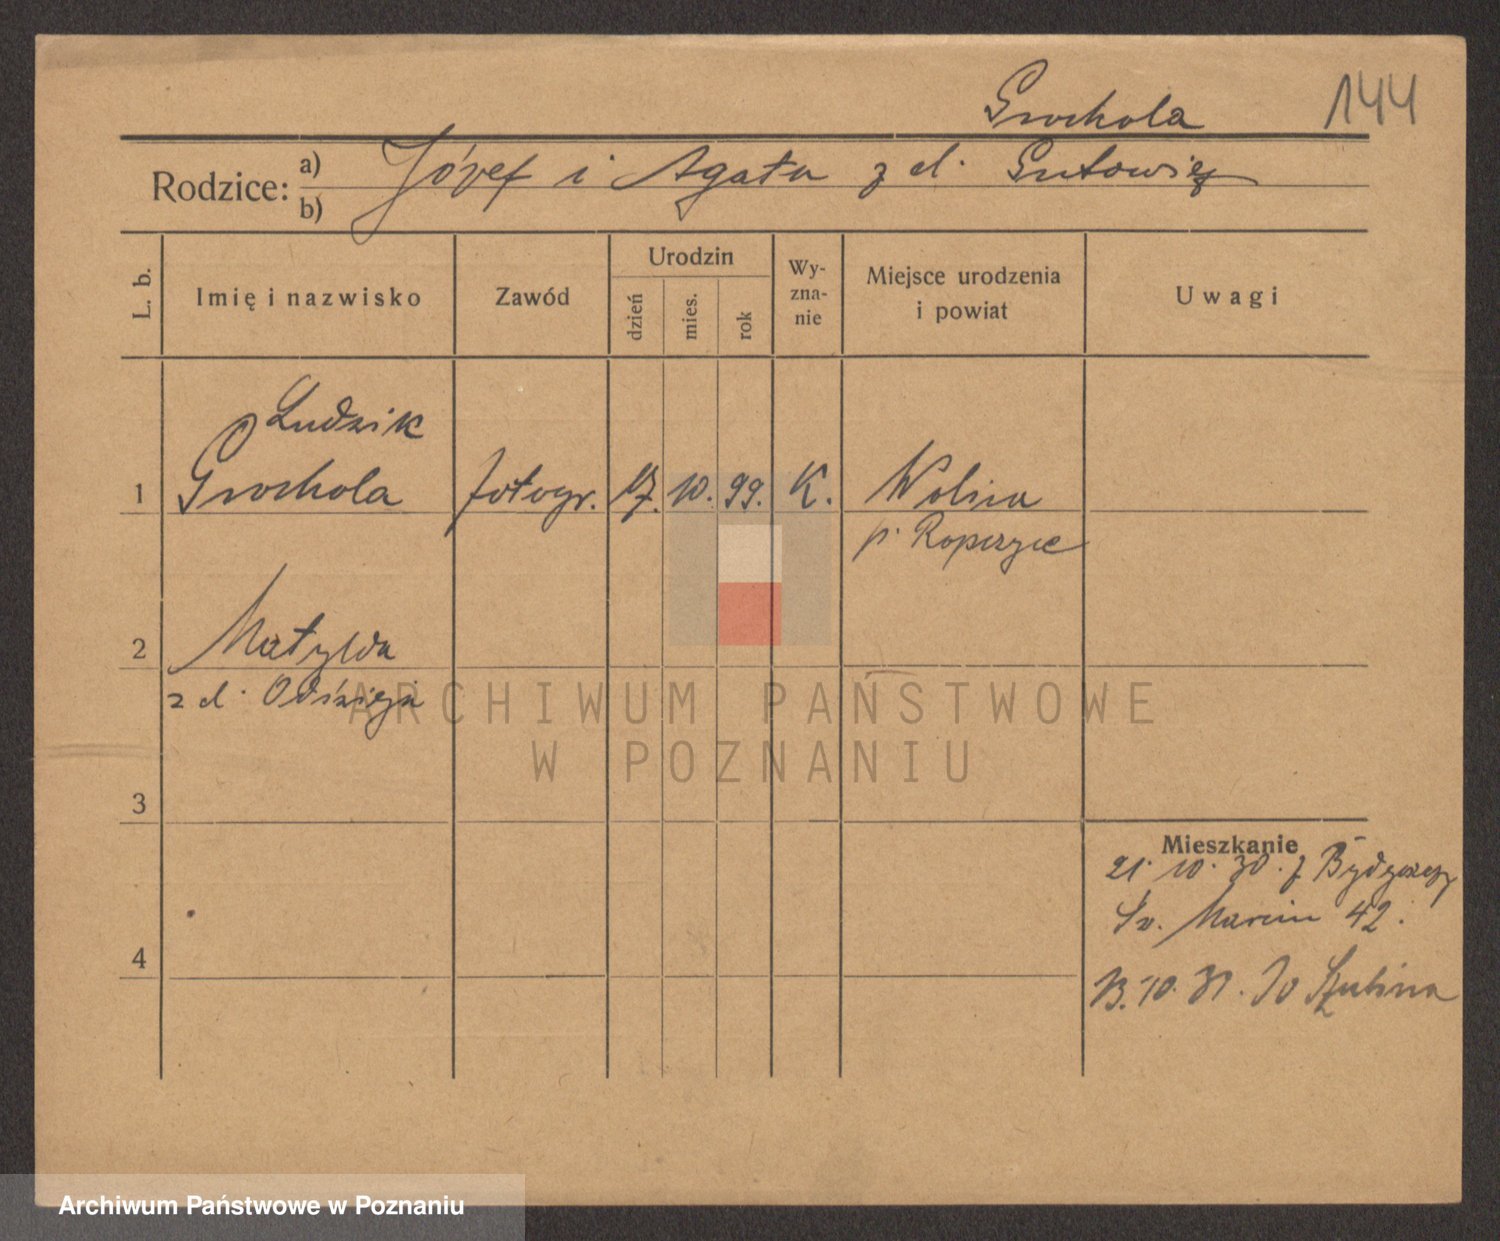 Grochola
144
Rodzice: a) b) Józef i Agata z d.
L. b.
Imię i nazwisko
Zawód
Urodzin
dzień
mies.
rok
Wy-
zna-
nie
Miejsce urodzenia
i powiat
Uwagi
Ludwik
1 Grochola fotogr. 17. 10. 99. K. Wolica
p. Ropczyce
2 Matylda
z d.
3
4
Mieszkanie
21. 10. 30. z Bydgoszczy
Św. Marcin 42.
13. 10. 31. do Szubina
ARCHIWUM PAŃSTWOWE
W POZNANIU
Archiwum Państwowe w Poznaniu